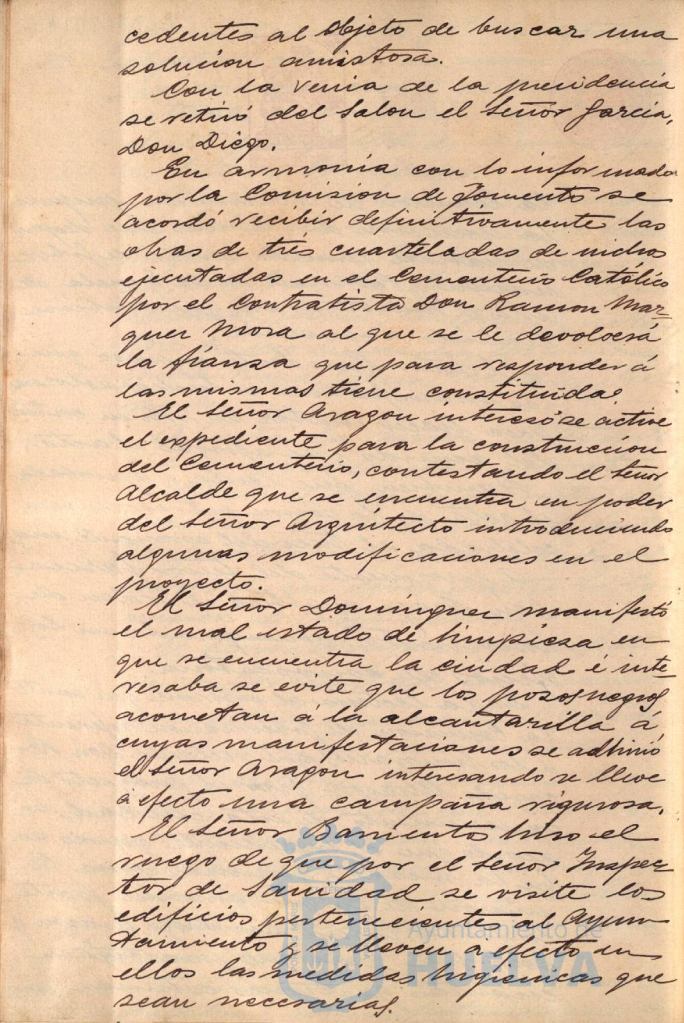 cedentes al objeto de buscar una
solucion amistosa.
Con la venia de la presidencia
se retiró del Salon el Señor Garcia,
Don Diego.
En armonia con lo informado
por la Comision de Fomento se
acordó recibir definitivamente las
obras de trés cuarteladas de nichos
ejecutadas en el Cementerio Católico
por el Contratista Don Ramon Mar-
quez Mora al que se le devolverá
la fianza que para responder á
las mismas tiene constituida.
El Señor Aragon interesó se active
el expediente para la construccion
del Cementerio, contestando el Señor
Alcalde que se encuentra en poder
del Señor Arquitecto introduciendo
algunas modificaciones en el
proyecto.
El Señor Dominguez manifestó
el mal estado de limpieza en
que se encuentra la ciudad é inte-
resaba se evite que los pozos negros
acometan á la alcantarilla á
cuyas manifestaciones se adhirió
el Señor Aragon interesando se lleve
á efecto una campaña rigurosa.
El Señor Barrientos hizo el
ruego de que por el Señor Inspec-
tor de Sanidad se visite los
edificios pertenecientes al Ayun-
tamiento y se lleven á efecto en
ellos las medidas higienicas que
sean necesarias.
Ayuntamiento de
HUELVA